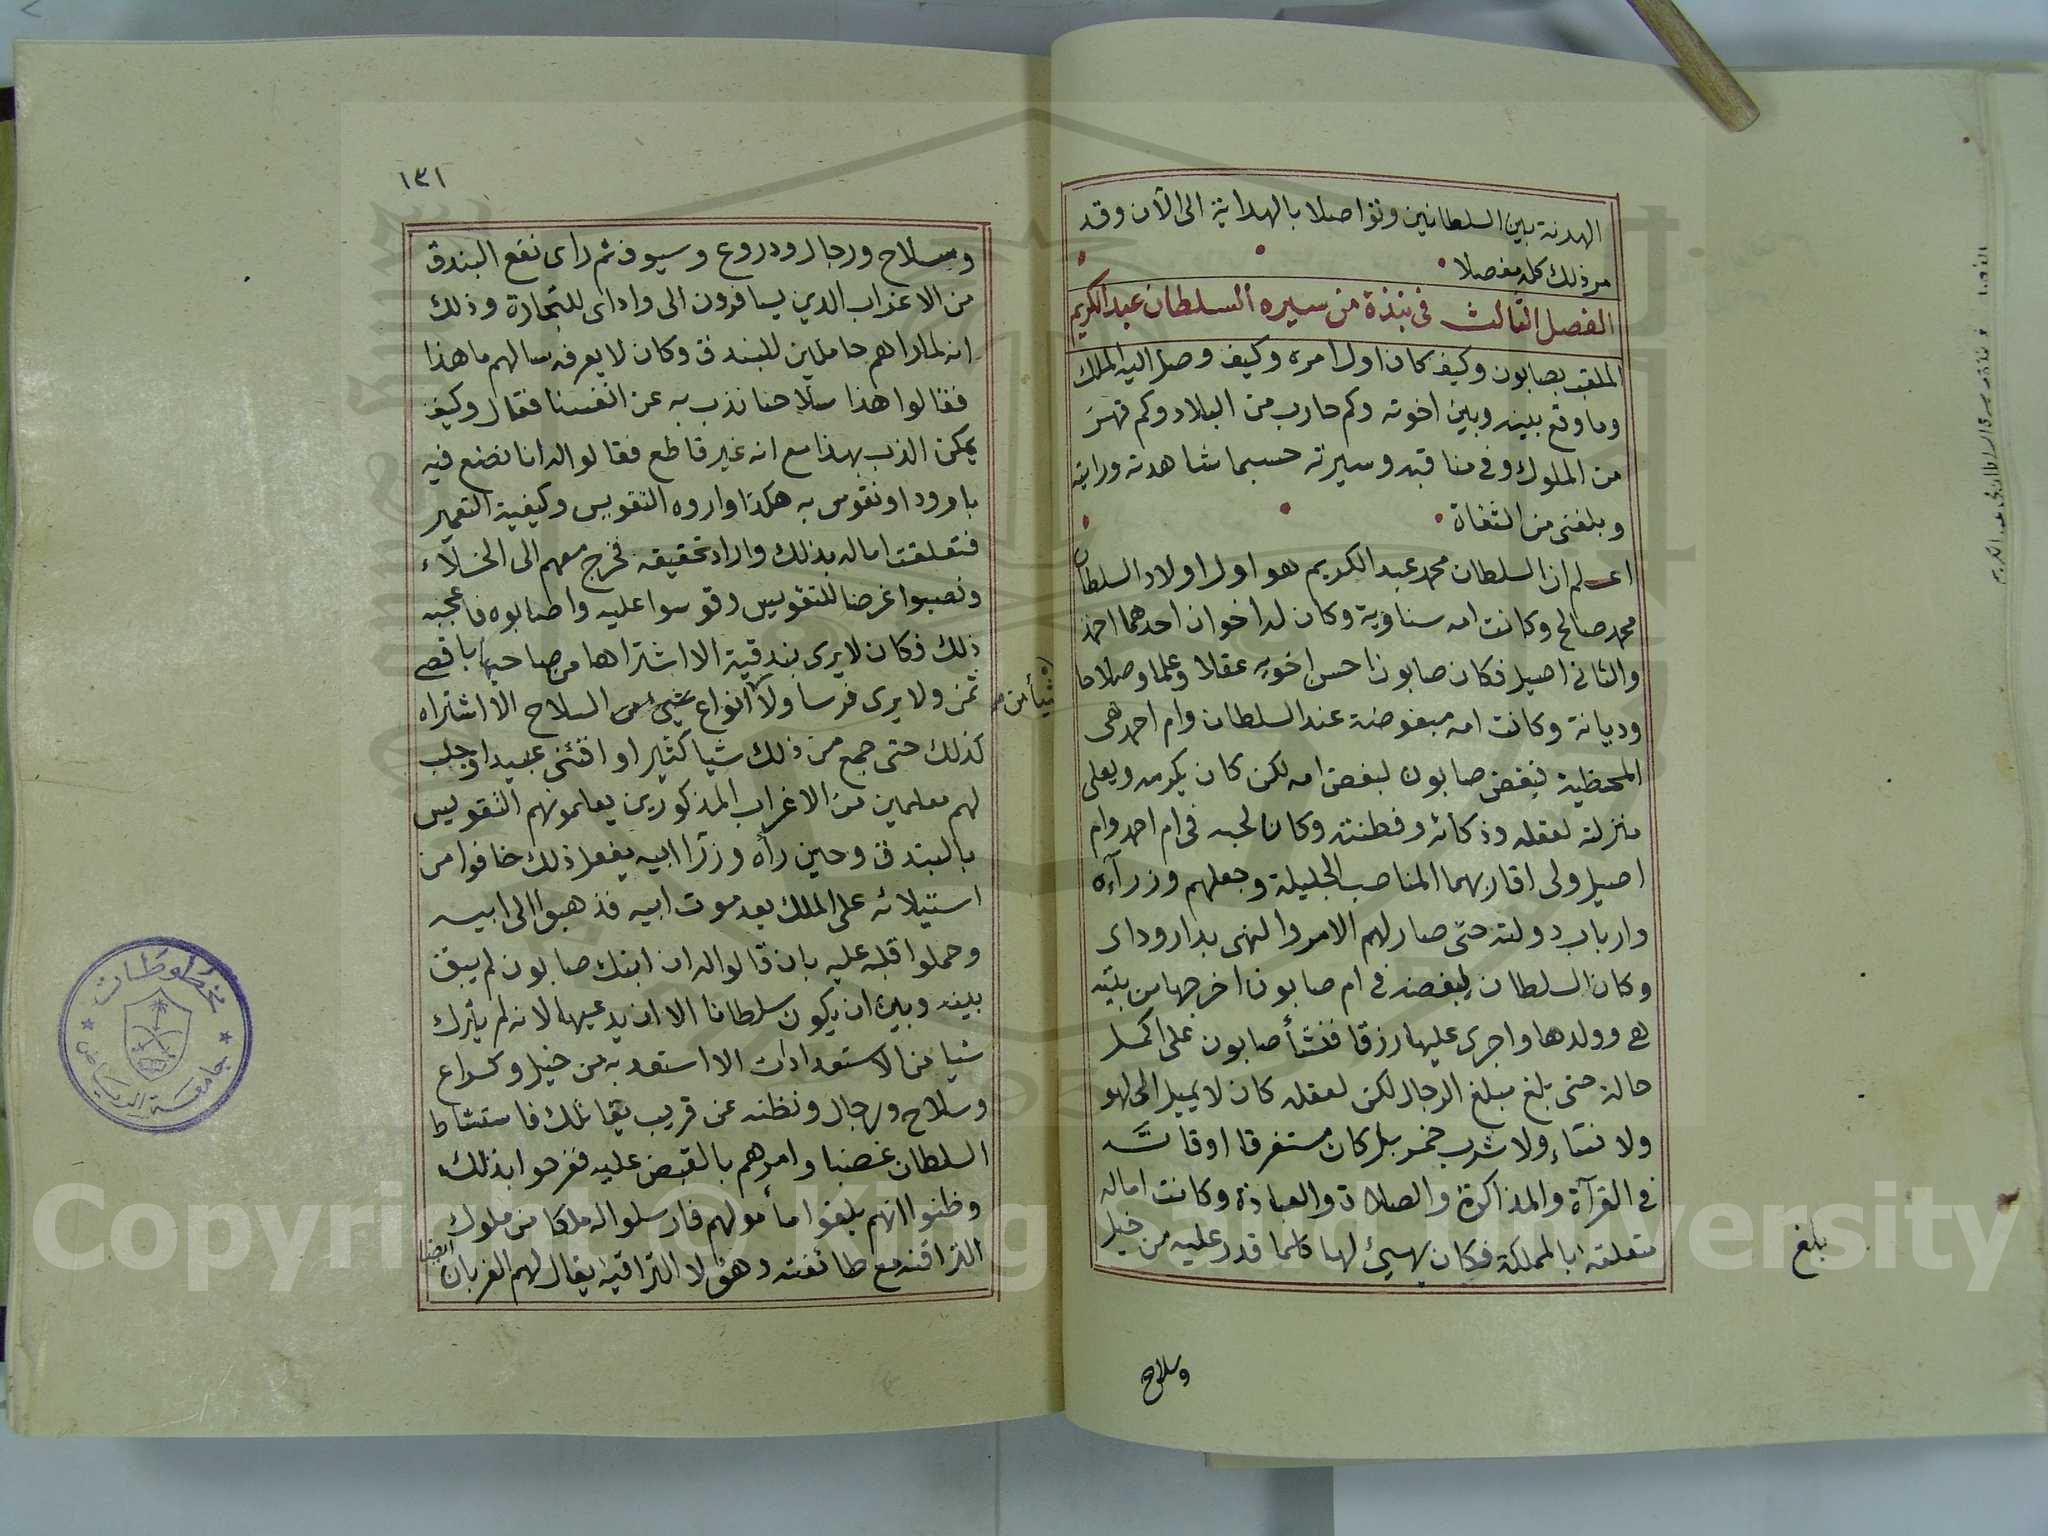 الهدنة بين السلطانين وتواصلا بالهداية الى الآن وقد
مر ذلك كله مفصلا
الفصل الثالث في نبذة من سيره السلطان عبد الكريم
الملقب بصابون وكيف كان اول امره وكيف وصل اليه الملك
وما وقع بينه وبين اخوته وكم حارب من البلاد وكم قهر
من الملوك وفى مناقبه وسيرته حسبما شاهدته ورايته
وبلغنى من الثقاة
اعلم ان السلطان محمد عبد الكريم هو اول اولاد السلطان
محمد صالح وكانت امه سناوية وكان له اخوان احدهما احمد
والثانى اصيل فكان صابون احسن اخويه عقلا وعلما وصلاحا
وديانة وكانت امه مبغوضة عند السلطان وام احمد هى
المحظية فبغض صابون لبغض امه لكن كان يكرمه ويعلى
منزلته لعقله وذكائه وفطنته وكان لحبه فى ام احمد وام
اصيل ولى اقاربهما المناصب الجليلة وجعلهم وزرآءه
وارباب دولته حتى صار لهم الامر والنهى بدار وداى
وكان السلطان لبغضه في ام صابون اخرجها من بيته
هى وولدها واجرى عليها رزقا فنشأ صابون على اكمل
حالة حتى بلغ مبلغ الرجال لكن لعقله كان لا يميل الى لهو
ولا نساء ولا شرب خمر بل كان مستغرقا اوقاته
في القرآة والمذاكرة والصلاة والعبادة وكانت اماله
متعلقة بالمملكة فكان يهيئ لها كلما قدر عليه من خيل
بلغ
وسلاح
١٣١
وسلاح ورجال ودروع وسيوف ثم راى نفع البندق
من الاعراب الذين يسافرون الى واداى للتجارة وذلك
انه لما راهم حاملين للبندق وكان لا يعرفه سالهم ما هذا
فقالوا هذا سلاحنا نذب به عن انفسنا فقال وكيف
يمكن الذب بهذا مع انه غير قاطع فقالوا له انا نضع فيه
بارودا ونقوس به هكذا واروه التقويس وكيفية التعمير
فتعلقت اماله بذلك واراد تحقيقه فخرج معهم الى الخلاء
ونصبوا غرضا للتقويس وقوسوا عليه واصابوه فاعجبه
ذلك فكان لا يرى بندقية الا اشتراها من صاحبها باقصى
ثمن ولا يرى فرسا ولا شيأ من انواع السلاح الا اشتراه
كذلك حتى جمع من ذلك شيا كثيرا واقتنى عبيدا وجلب
لهم معلمين من الاعراب المذكورين يعلمونهم التقويس
بالبندق وحين رأه وزرا ابيه يفعل ذلك خافوا من
استيلائه على الملك بعد موت ابيه فذهبوا الى ابيه
وحملوا قلبه عليه بان قالوا له ان ابنك صابون لم يبق
بينه وبين ان يكون سلطانا الا ان يدعيها لانه لم يترك
شيا من الاستعدادات الا استعد به من خيل وكراع
وسلاح ورجال ونظنه عن قريب يقاتلك فاستشاط
السلطان غضبا وامرهم بالقبض عليه ففرحوا بذلك
وظنوا انهم بلغوا مأمولهم فارسلوا له ملكا من ملوك
التراقنه مع طائفته وهؤلا التراقنه يقال لهم الغربان ايضا
مخطوطات
جامعة الرياض
Copyright © King Saud University